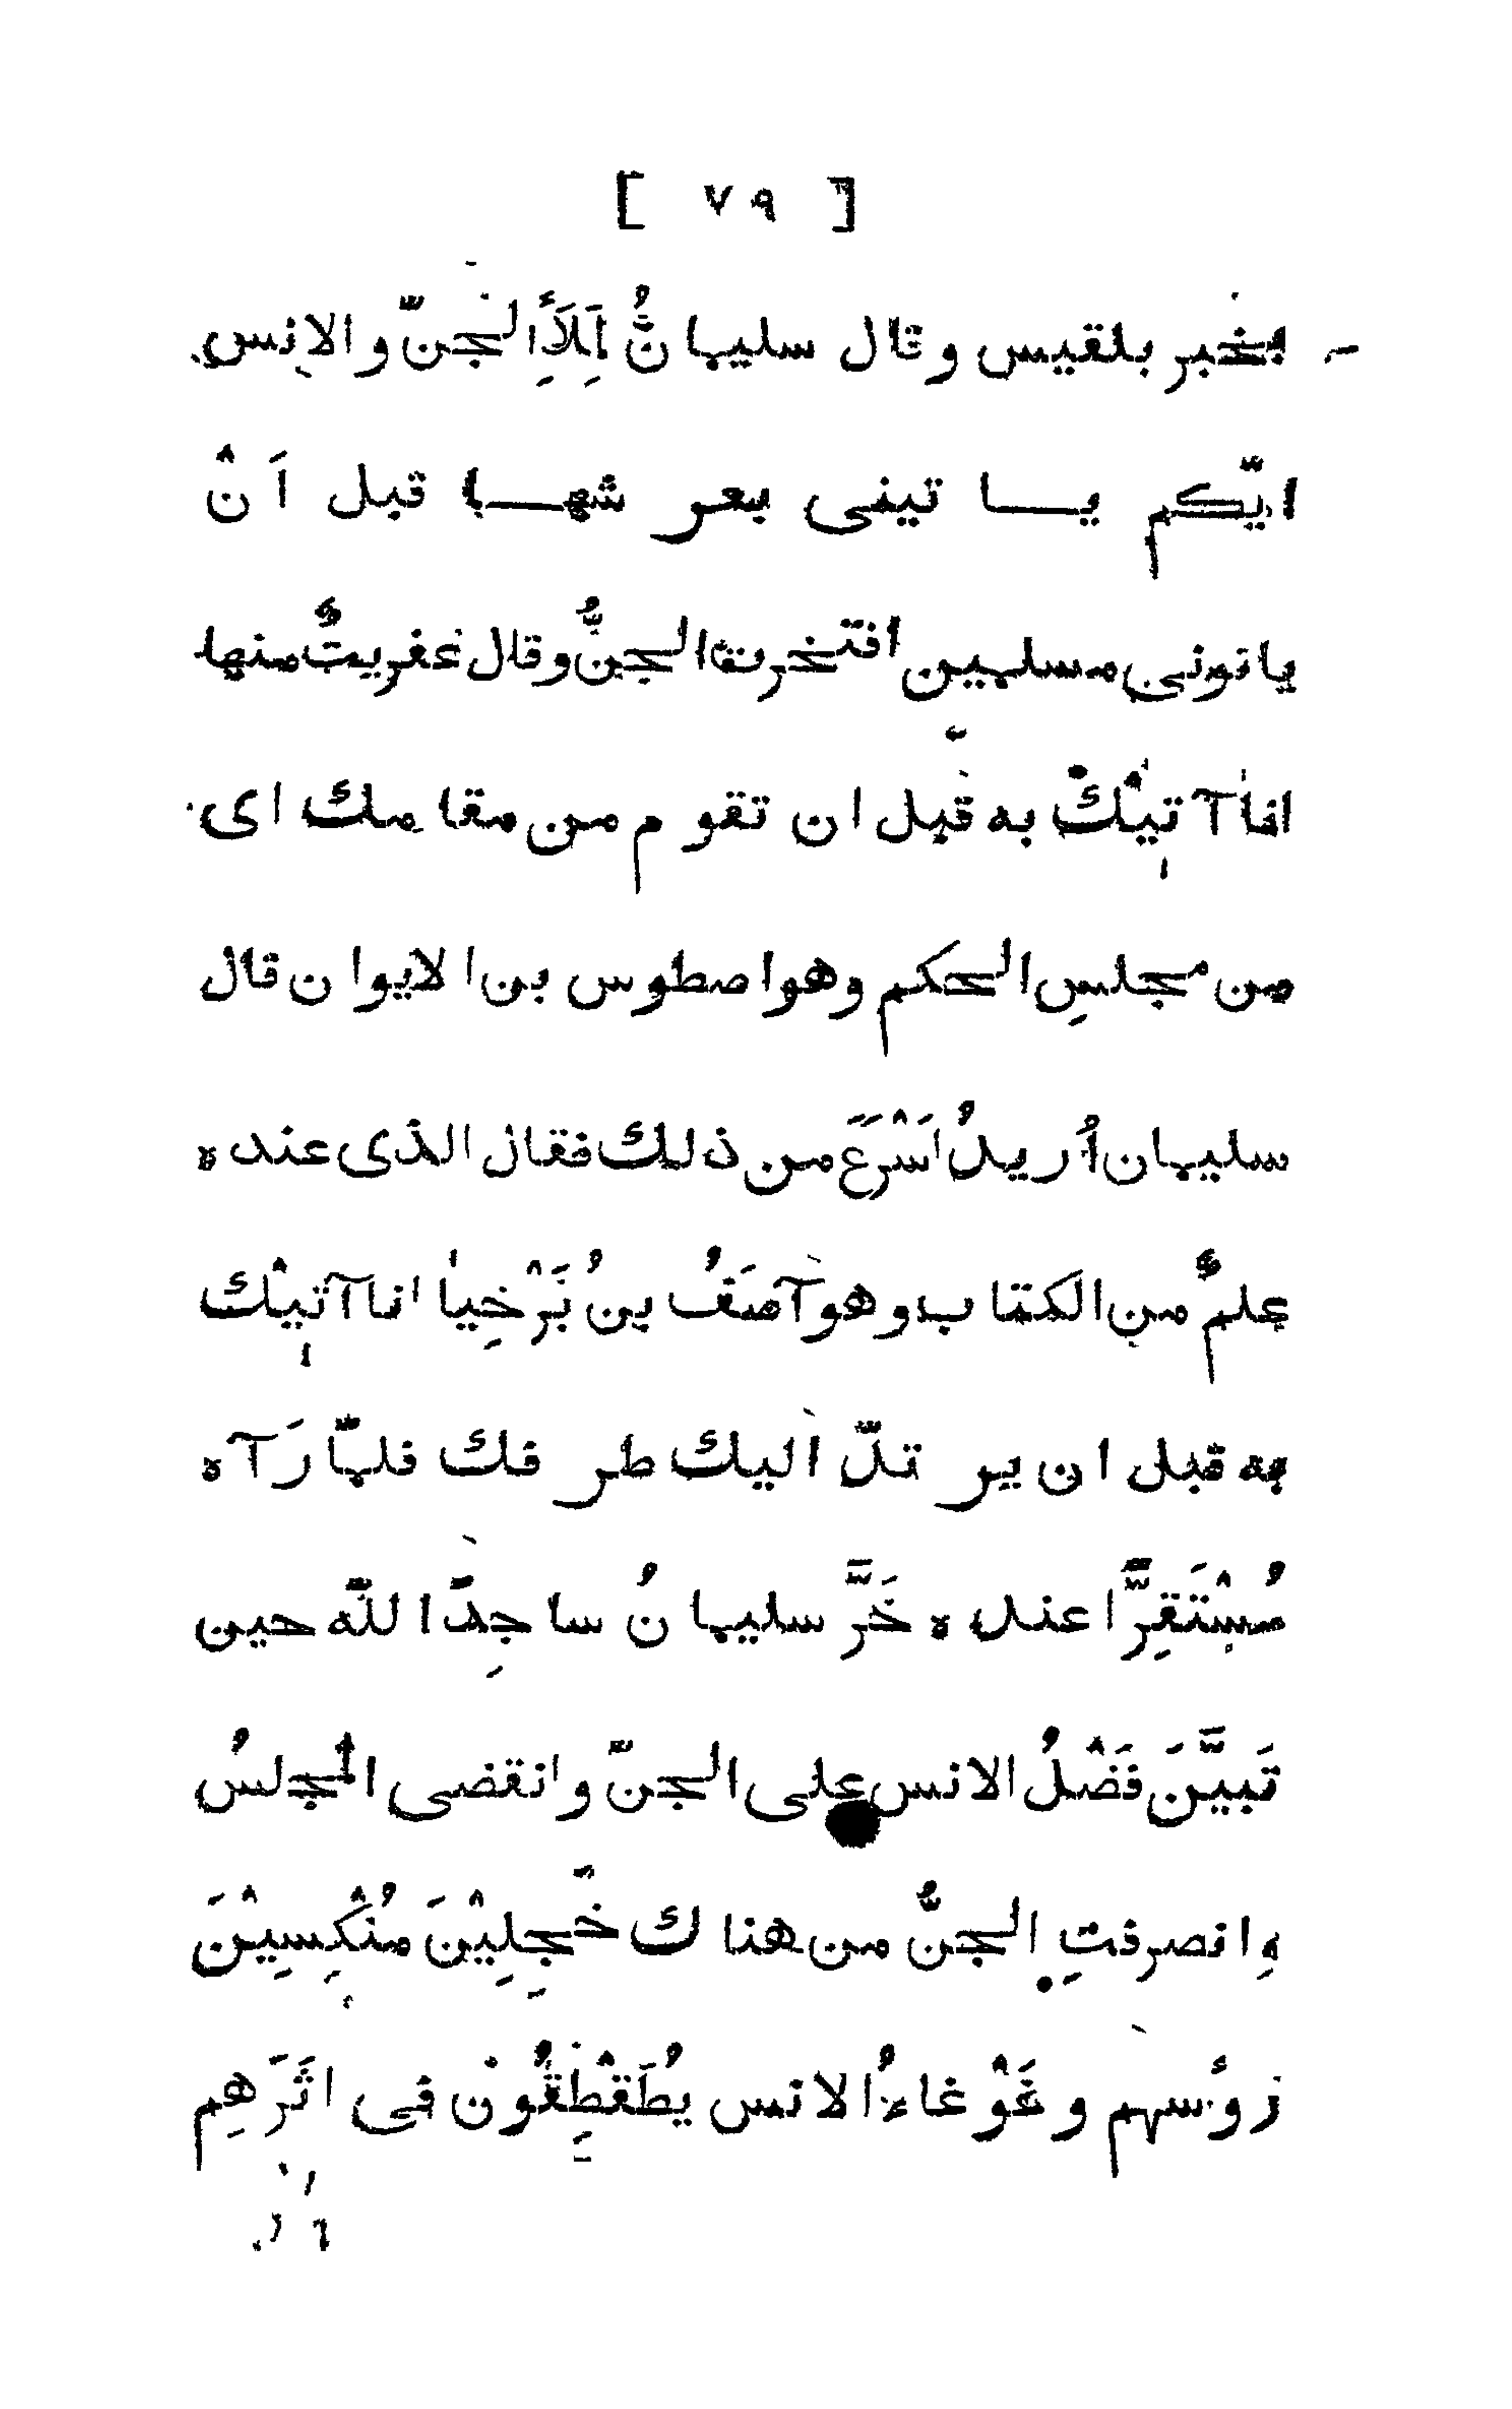 [ ٧٩ ]
بخبر بلقيس وقال سليمانُ لِمَلَأِ الجنّ والانس
ايّكم يا تينى بعر شها قبل اَنْ
ياتونى مسلمين افتخرت الجنُّ وقال عفريتٌ منها
انا آتيْك به قبل ان تقوم من مقامك اى
من مجلسِ الحكم وهو اصطوس بن الايوان قال
سليمان اُريدُ اَسْرَعَ من ذلك فقال الذى عنده
علمٌ من الكتاب وهو آصَفُ بنُ بَرْخِيا انا آتيْك
به قبل ان يرتدّ اليك طرفك فلمّا رَآه
مُسْتَقِرًّا عنده خَرَّ سليمانُ ساجِدًا للّه حين
تَبيَّنَ فَضْلُ الانس على الجنّ وانقضى المجلسُ
وانصرفتِ الجنُّ من هناك خَجِلِيْنَ مُنْكِسِيْنَ
رؤسهم وغَوْغاءُ الانس يُطَقْطِقُوْن فى اثَرِهِم